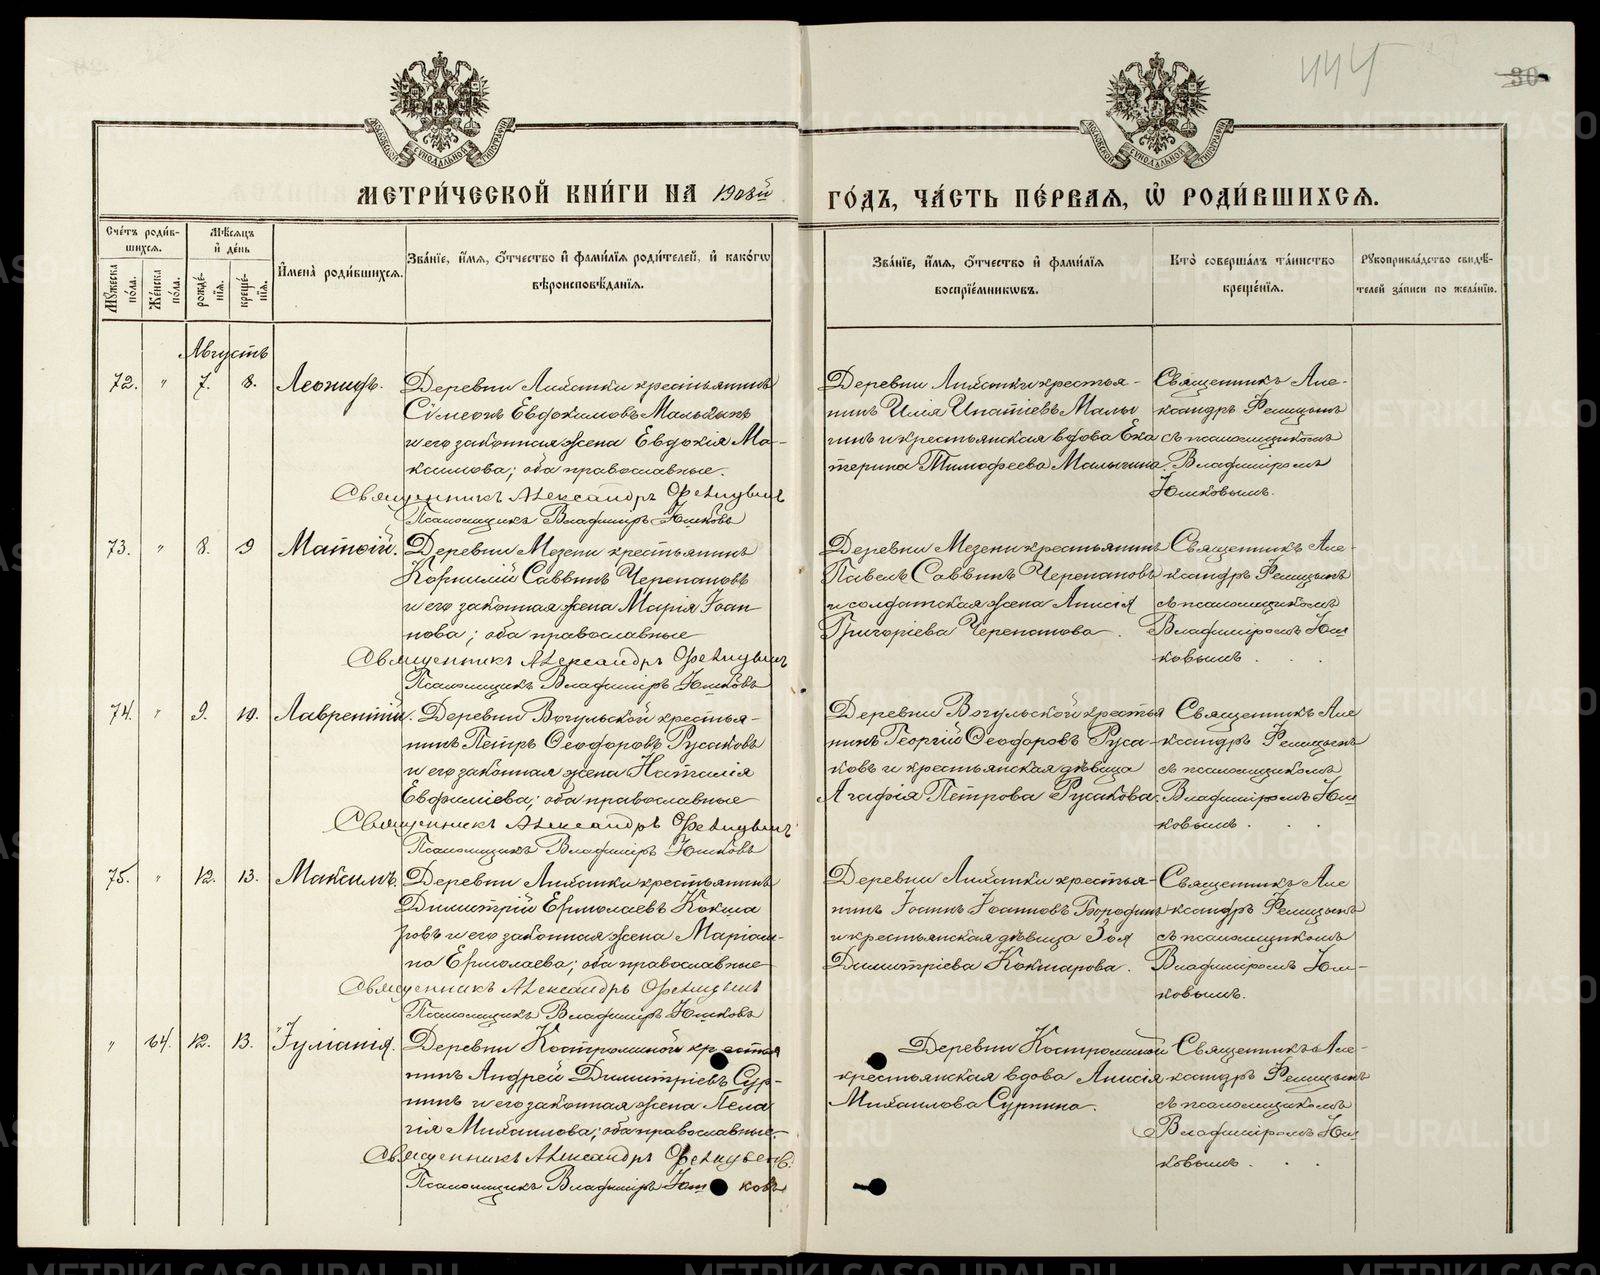 444
30
МЕТРИ́ЧЕСКОЙ КНИ́ГИ НА 1908й ГО́ДЪ, ЧА́СТЬ ПЕ́РВАѦ, Ѽ РОДИ́ВШИХСѦ.
Сче́тъ роди́вшихсѧ.
Мꙋ́жеска по́ла.
Же́нска по́ла.
Мѣ́сѧцъ и҆ де́нь
рожде́нїѧ.
креще́нїѧ.
И҆мена̀ роди́вшихсѧ.
Зва́нїе, и҆́мѧ, ѻ҆́тчество и҆ фами́лїѧ роди́телей, и҆ како́гѡ
вѣроисповѣ́данїѧ.
Зва́нїе, и҆́мѧ, ѻ҆́тчество и҆ фами́лїѧ
воспрїе́мникѡвъ.
Кто̀ соверша́лъ та́инство
креще́нїѧ.
Рꙋкоприкла́дство свидѣ́-
телей за́писи по жела́нїю.
Августъ
72. " 7. 8. Леонидъ.
Деревни Лихачки крестьянинъ
Сѵмеонъ Евдокимовъ Малыгинъ
и его законная жена Евдокія Ма-
ксимова; оба православные.
Священникъ Александръ Фелицынъ
Псаломщикъ Владиміръ Юшковъ
Деревни Лихачки крестья-
нинъ Илія Ипатіевъ Малы
гинъ и крестьянская вдова Ека
терина Тимофеева Малыгина.
Священникъ Але-
ксандръ Фелицынъ
съ псаломщикомъ
Владиміромъ
Юшковымъ.
73. " 8. 9 Матѳій.
Деревни Мезени крестьянинъ
Корнилій Саввинъ Черепановъ
и его законная жена Марія Іоан
нова; оба православные
Священникъ Александръ Фелицынъ
Псаломщикъ Владиміръ Юшковъ
Деревни Мезени крестьянинъ
Павелъ Саввинъ Черепановъ
и солдатская жена Анисія
Григоріева Черепанова.
Священникъ Але-
ксандръ Фелицынъ
съ псаломщикомъ
Владиміромъ Юш
ковымъ.
74. " 9. 10. Лаврентій.
Деревни Вогульской крестья-
нинъ Петръ Ѳеодоровъ Русаковъ
и его законная жена Наталія
Евфиміева; оба православные
Священникъ Александръ Фелицынъ
Псаломщикъ Владиміръ Юшковъ
Деревни Вогульской крестья
нинъ Георгій Ѳеодоровъ Руса-
ковъ и крестьянская дѣвица
Агафія Петрова Русакова.
Священникъ Але
ксандръ Фелицынъ
съ псаломщикомъ
Владиміромъ Юш
ковымъ.
75. " 12. 13. Максимъ.
Деревни Лихачки крестьянинъ
Димитрій Ермолаевъ Кокша
ровъ и его законная жена Маріам-
на Ермолаева; оба православные
Священникъ Александръ Фелицынъ
Псаломщикъ Владиміръ Юшковъ
Деревни Лихачки крестья-
нинъ Іоаннъ Іоанновъ Бородинъ
и крестьянская дѣвица Зоя
Димитріева Кокшарова.
Священникъ Але
ксандръ Фелицынъ
съ псаломщикомъ
Владиміромъ Юш-
ковымъ.
" 64. 12. 13. Іуліанія.
Деревни Костроминой крестья
нинъ Андрей Димитріевъ Сур-
нинъ и его законная жена Пела
гія Михаилова; оба православные.
Священникъ Александръ Фелицынъ.
Псаломщикъ Владиміръ Юшковъ
Деревни Костроминой
крестьянская вдова Анисія
Михаилова Сурнина.
Священникъ Але-
ксандръ Фелицынъ
съ псаломщикомъ
Владиміромъ Юш
ковымъ.